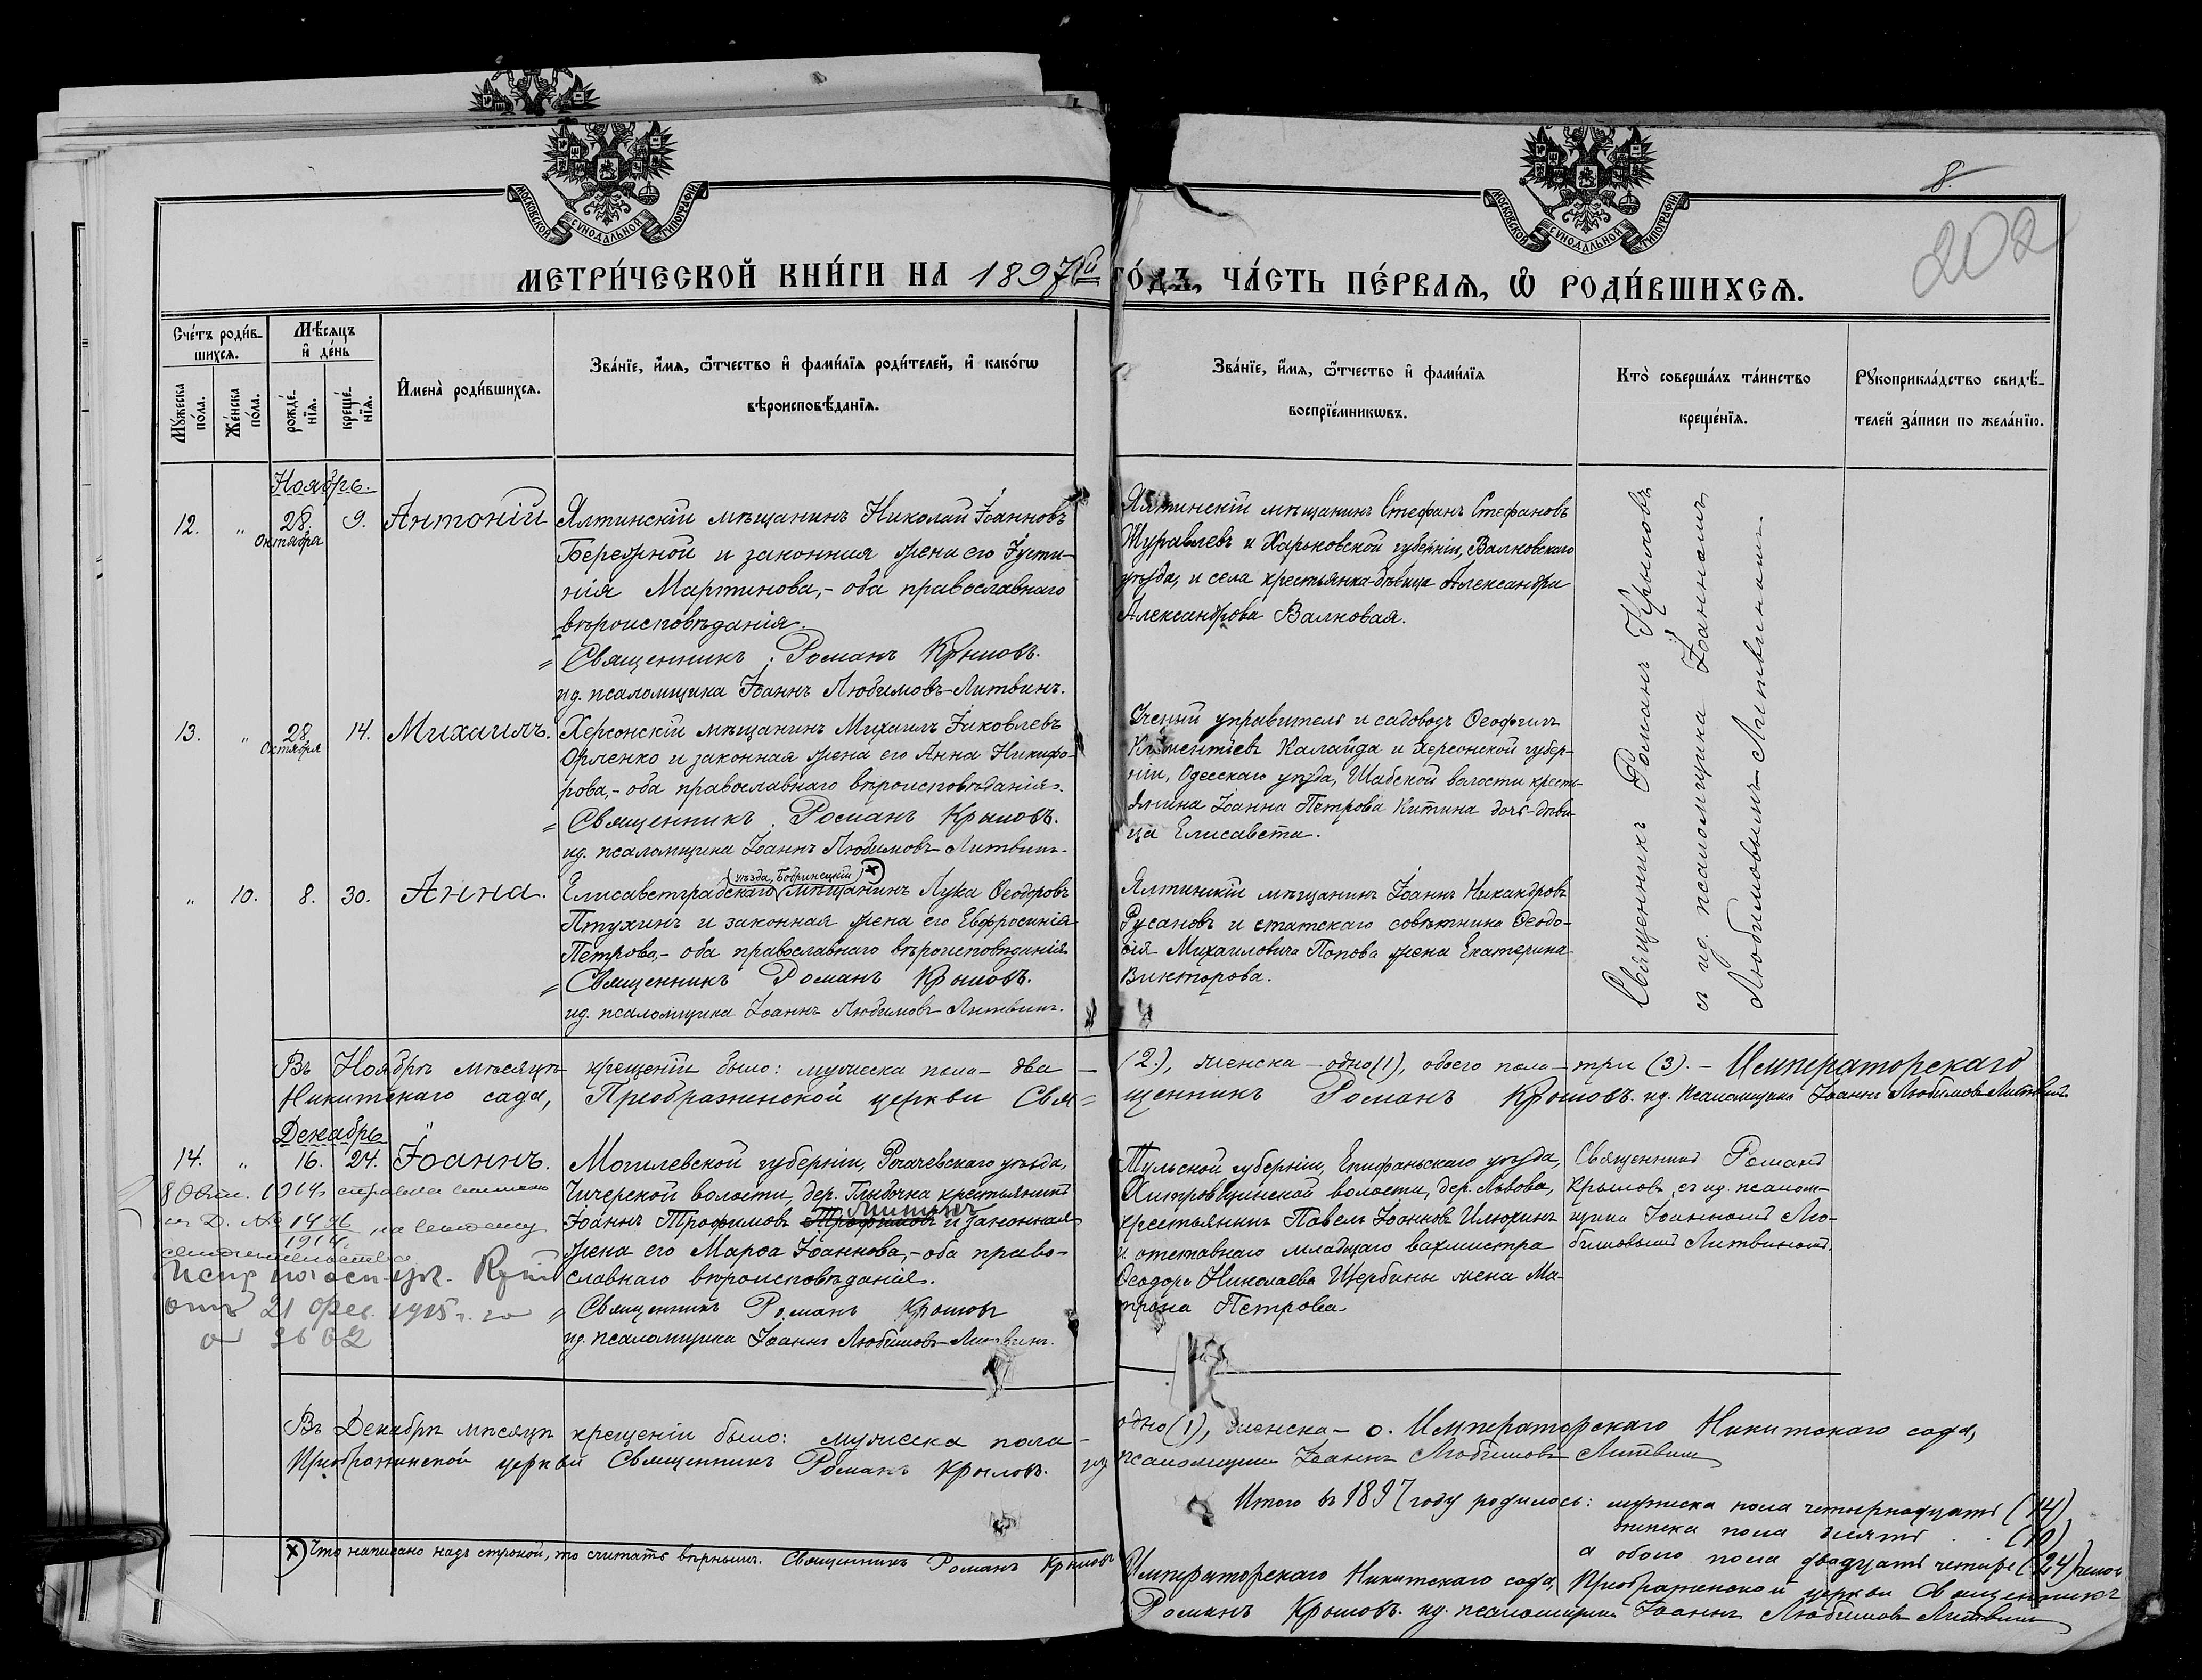 МОСКОВСКОЙ СѴНОДАЛЬНОЙ ТИПОГРАФІИ
МОСКОВСКОЙ СѴНОДАЛЬНОЙ ТИПОГРАФІИ
8.
202
МЕТРИ́ЧЕСКОЙ КНИ́ГИ НА 1897й ГО́ДЪ, ЧА́СТЬ ПЕ́РВАѦ, Ѽ РОДИ́ВШИХСѦ.
Сче́тъ роди́в-
шихсѧ.
Мѣ́сѧцъ
и҆ де́нь
Мꙋ́жеска
по́ла.
Же́нска
по́ла.
рожде́-
нїѧ.
креще́-
нїѧ.
И҆мена̀ роди́вшихсѧ.
Зва́нїе, и҆́мѧ, ѻ҆́тчество и҆ фами́лїѧ роди́телей, и҆ како́гѡ
вѣроисповѣ́данїѧ.
Зва́нїе, и҆́мѧ, ѻ҆́тчество и҆ фами́лїѧ
воспрїе́мникѡвъ.
Кто̀ соверша́лъ та́инство
креще́нїѧ.
Рꙋкоприкла́дство свидѣ́-
телей за́писи по жела́нїю.
Ноябрь.
12. " 28. Октября 9. Антоній
Ялтинскій мѣщанинъ Николай Іоанновъ
Бережной и законная жена его Іусти-
нія Мартинова,- оба православнаго
вѣроисповѣданія.
Священникъ Романъ Крыловъ.
ид. псаломщика Іоаннъ Любимовъ-Литвинъ.
Ялтинскій мѣщанинъ Стефанъ Стефановъ
Журавлевъ и Харьковской губерніи, Валковскаго
уѣзда, и села крестьянка-дѣвица Александра
Александрова Валковая.
Священникъ Романъ Крыловъ
съ ид. псаломщика Іоанномъ
Любимовымъ-Литвиномъ.
13. " 28 Октября 14. Михаилъ.
Херсонскій мѣщанинъ Михаилъ Іаковлевъ
Орленко и законная жена его Анна Никифо-
рова,- оба православнаго вѣроисповѣданія.
Священникъ Романъ Крыловъ.
ид. псаломщика Іоаннъ Любимовъ-Литвинъ.
Ученый управитель и садоводъ Ѳеофилъ
Климентіевъ Калайда и Херсонской губер-
ніи, Одесскаго уѣзда, Шабской волости крестья-
янина Іоанна Петрова Китина дочь-дѣви-
ца Елисавета.
" 10. 8. 30. Анна.
(уѣзда, Бобринецкій)
Елисаветградскаго мѣщанинъ Лука Ѳеодоровъ
Птухинъ и законная жена его Евфросинія
Петрова,- оба православнаго вѣроисповѣданія
Священникъ Романъ Крыловъ.
ид. псаломщика Іоаннъ Любимовъ-Литвинъ.
Ялтинскій мѣщанинъ Іоаннъ Никандровъ
Русановъ и статскаго совѣтника Ѳеодо-
сія Михаиловича Попова жена Екатерина
Викторова.
Въ Ноябрѣ мѣсяцѣ крещеній было: мужеска пола - два - (2.), женска - одно (1), обоего пола - три (3). - Императорскаго
Никитскаго сада, Преображенской церкви Священникъ Романъ Крыловъ. ид. псаломщика Іоаннъ Любимовъ-Литвинъ.
Декабрь
14. " 16. 24. Іоаннъ.
8 Окт. 1914 справка
1496
1914
21 фев. 1915
2602
Могилевской губерніи, Рогачевскаго уѣзда,
Чичерской волости, дер. Глыбочка крестьянинъ
Іоаннъ Трофимовъ Трофимовъ и законная
жена его Марѳа Іоаннова,- оба право-
славнаго вѣроисповѣданія.
Священникъ Романъ Крыловъ
ид. псаломщика Іоаннъ Любимовъ-Литвинъ.
Тульской губерніи, Епифаньскаго уѣзда,
Хитровщинской волости, дер. Львова,
крестьянинъ Павелъ Іоанновъ Илюхинъ
и отставнаго младшаго вахмистра
Ѳеодора Николаева Щербины жена Ма-
трона Петрова
Священникъ Романъ
Крыловъ, съ ид. псалом-
щика Іоанномъ Лю-
бимовымъ Литвиномъ.
Въ Декабрѣ мѣсяцѣ крещеній было: мужеска пола - одно (1), женска - 0. Императорскаго Никитскаго сада,
Преображенской церкви Священникъ Романъ Крыловъ. ид. псаломщика Іоаннъ Любимовъ Литвинъ
Итого въ 1897 году родилось: мужеска пола четырнадцать (14)
женска пола десять . . (10)
а обоего пола двадцать четыре (24)
Императорскаго Никитскаго сада, Преображенской церкви Священникъ
Романъ Крыловъ. ид. псаломщика Іоаннъ Любимовъ Литвинъ
Что написано надъ строкой, то считать вѣрнымъ. Священникъ Романъ Крыловъ